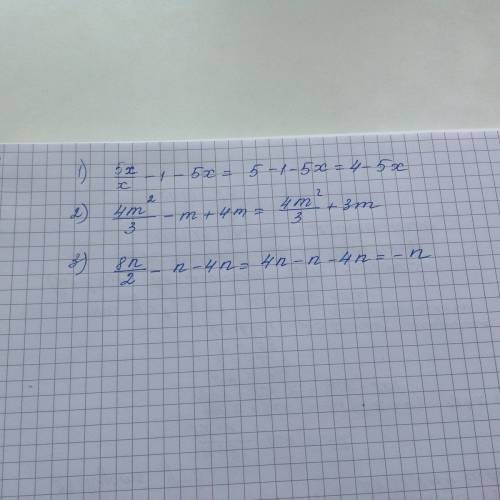 1) 5x/x - 1 - 5x = 5 - 1 - 5x = 4 - 5x
2) 4m²/3 - m + 4m = 4m²/3 + 3m
3) 8n/2 - n - 4n = 4n - n - 4n = -n